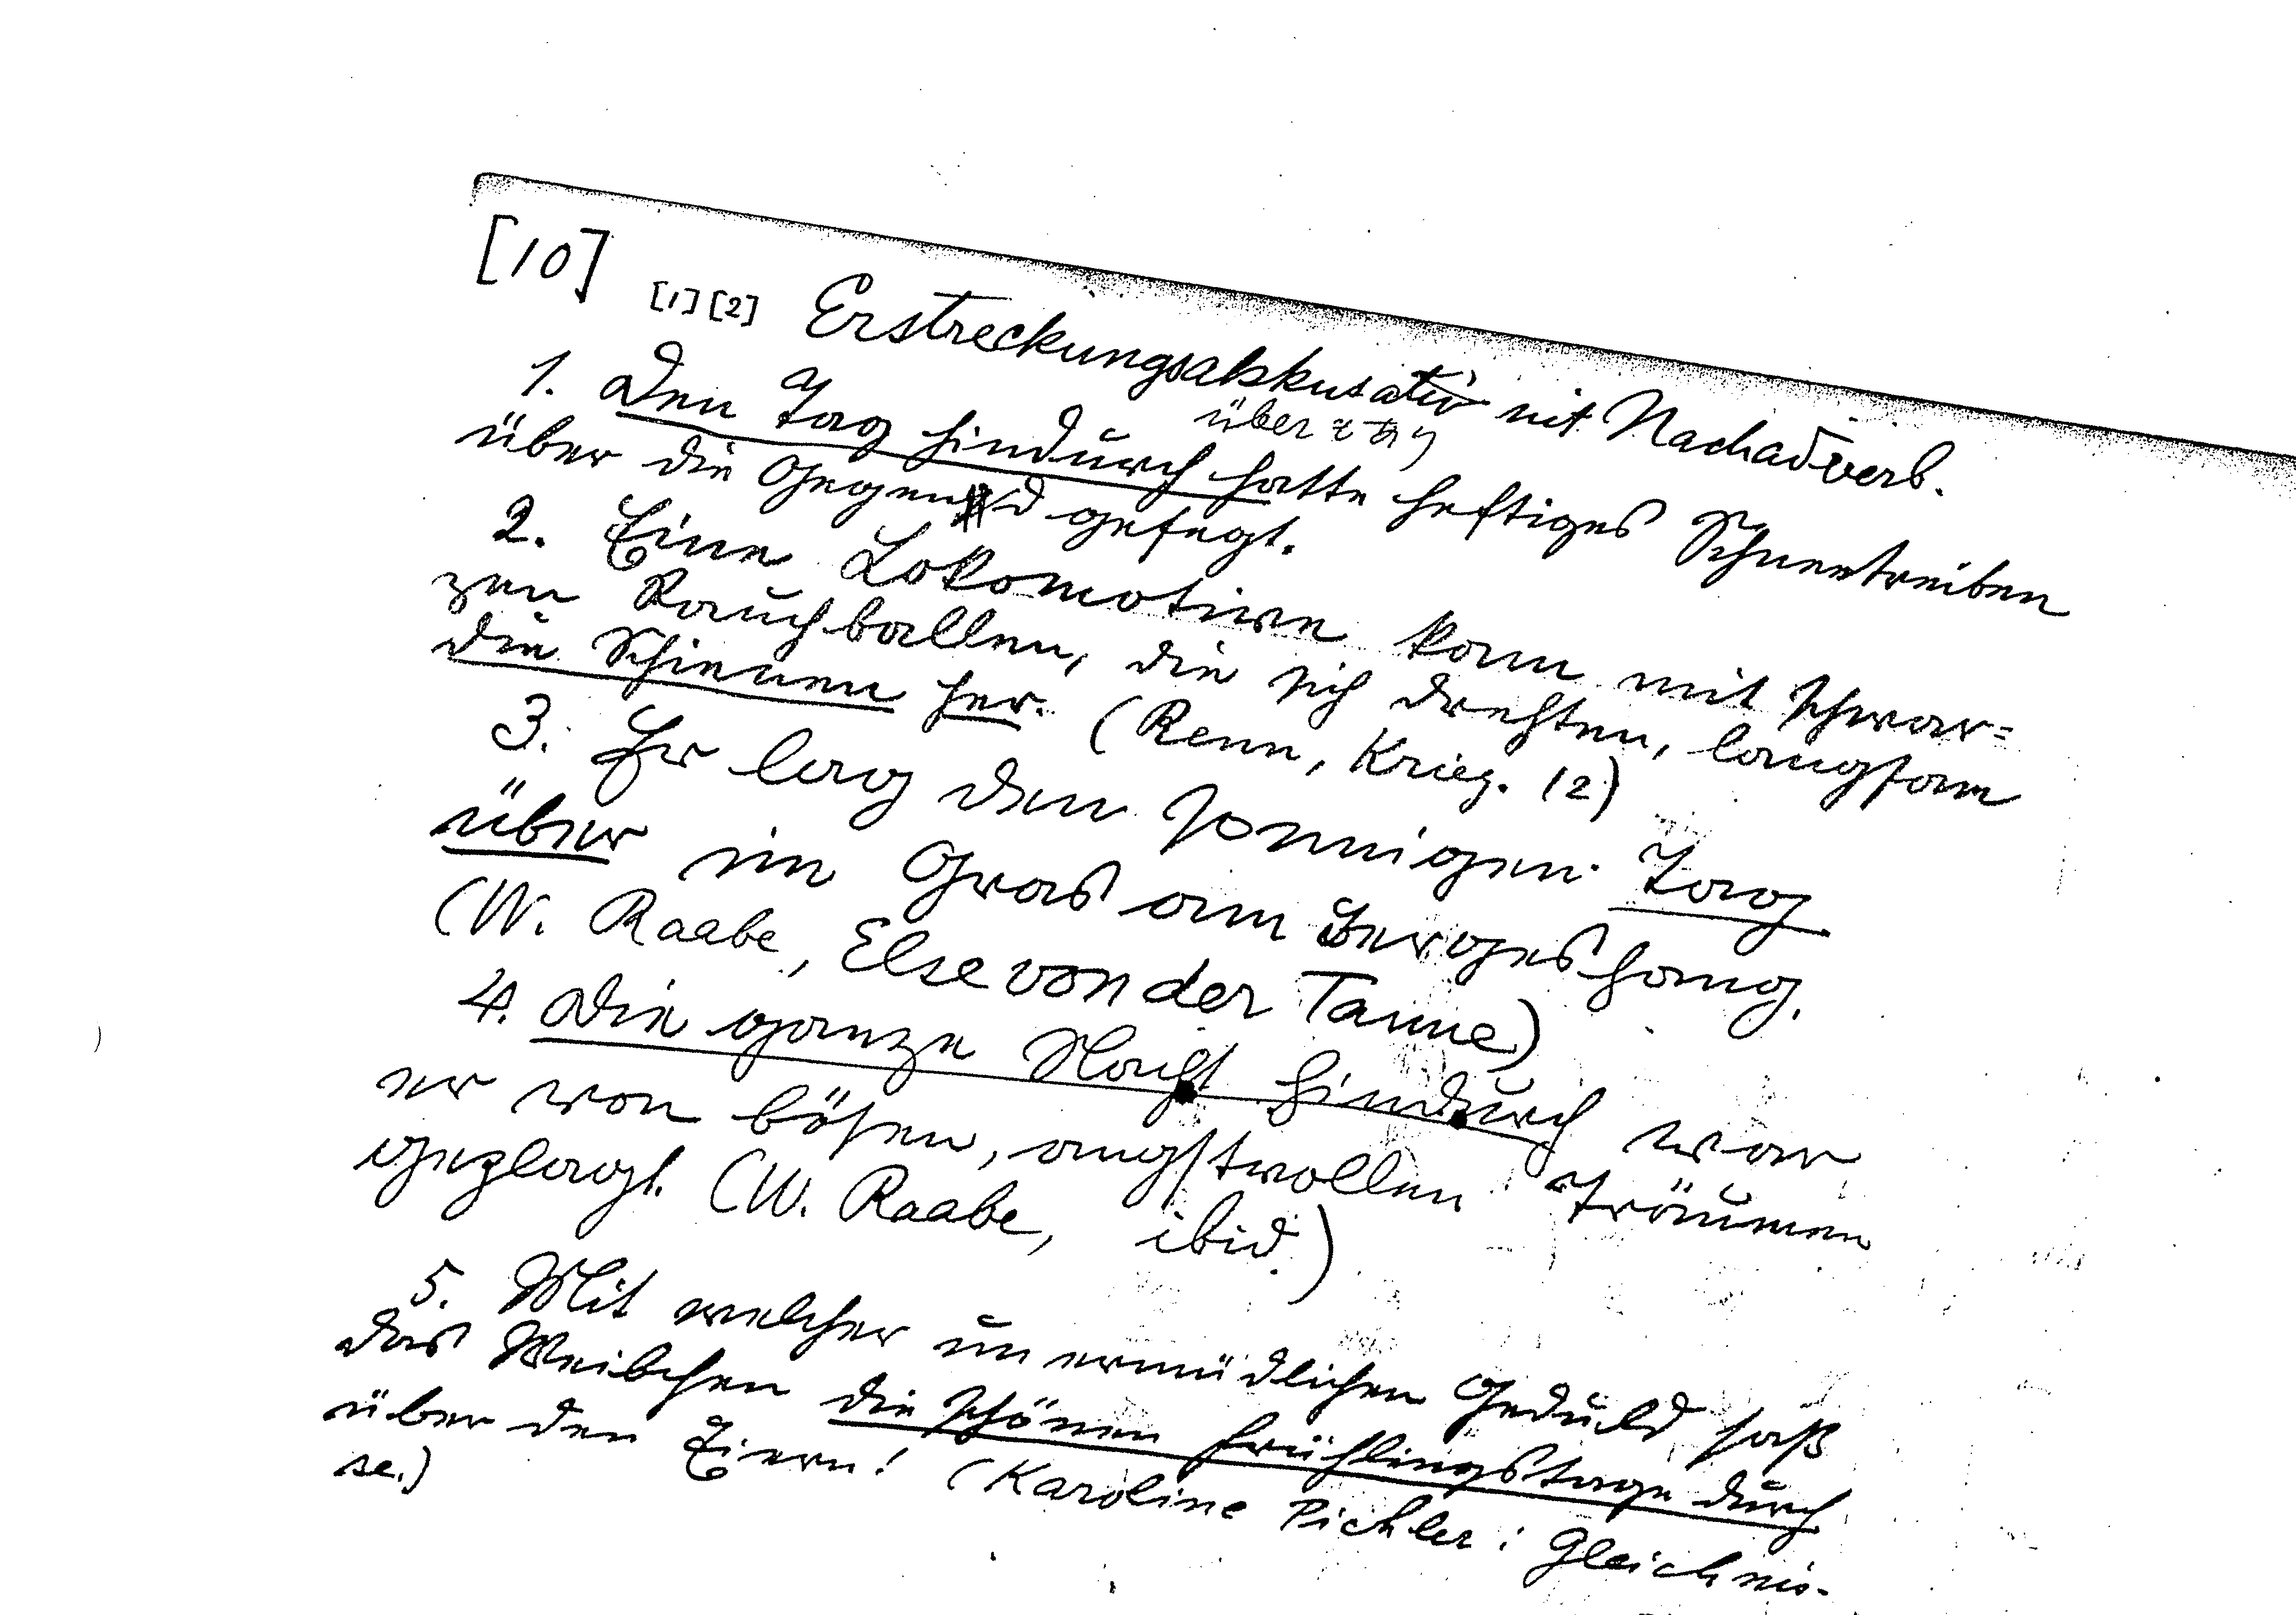 [10] [1][2] Erstreckungsakkusativ mit Nachadverb.
über
1. Den Tag hindurch hatte heftiges Schneetreiben
über die Gegend gefegt.
2. Eine Lokomotive kam mit schwar=
zen Rauchballen, die sich drehten, langsam
die Schienen her. (Renn, Krieg. 12)
3. Er lag den sonnigen Tag
über im Gras am Bergeshang.
(W. Raabe, Else von der Tanne)
4. Die ganze Nacht hindurch war
er von bösen, angstvollen Träumen
geplagt. (W. Raabe, ibid.)
5. Mit welcher unermüdlichen Geduld saß
das Weibchen die schönen Frühlingstage durch
über den Eiern! (Karoline Pichler: Gleichnis-
se.)